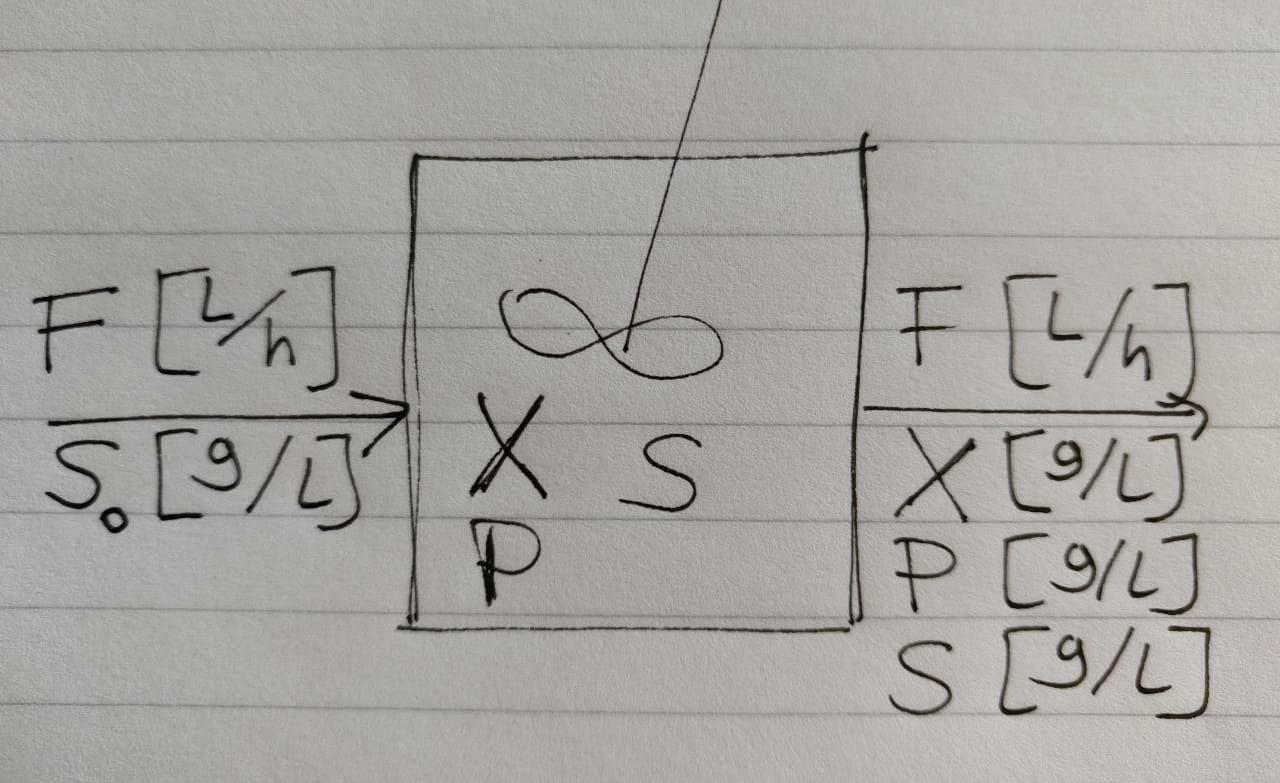 F [L/h]
S₀ [g/L]
X S
P
F [L/h]
X [g/L]
P [g/L]
S [g/L]